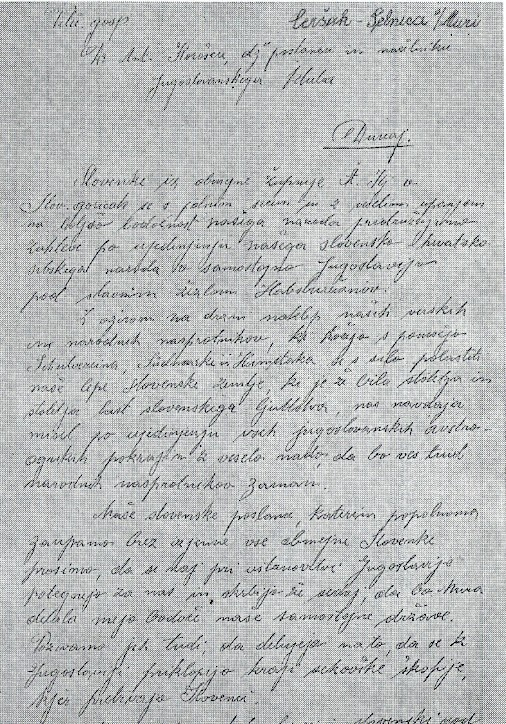 Velec. gosp.
Ceršak - Selnica o/Muri
Dr. Ant. Korošcu, drž. poslancu in načelniku
Jugoslovanskega kluba
Dunaj.
Slovenke iz obmejne župnije Št. Ilj v
Slov. goricah se s polnim srcem in z velikim upanjem
na boljšo bodočnost našega naroda pridružujemo
zahtevi po ujedinjenju našega slovensko hrvatsko
srbskega naroda v samostojno Jugoslavijo
pod slavnim žezlom Habsburžanov.
Z ozirom na drzni naklep naših verskih
in narodnih nasprotnikov, ki hočejo s pomočjo
Schulvereina, Südmarke in Heimstaka si s silo polastiti
naše lepe Slovenske zemlje, ki je že bila stoletja in
stoletja last slovenskega ljudstva, nas navdaja
misel po ujedinjenju vseh jugoslovanskih avstro-
ogrskih pokrajin z veselo nado, da bo ves trud
narodnih nasprotnikov zaman.
Naše slovenske poslance, katerim popolnoma
zaupamo brez izjeme vse obmejne Slovenke
prosimo, da se naj pri ustanovitvi Jugoslavije
potegnejo za nas in skrbijo že sedaj, da bo Mura
delala mejo bodoče naše samostojne države.
Pozivamo jih tudi, da delujejo na to, da se k
Jugoslaviji priklopijo kraji sekovške škofije,
kjer prebivajo Slovenci.
slovenski